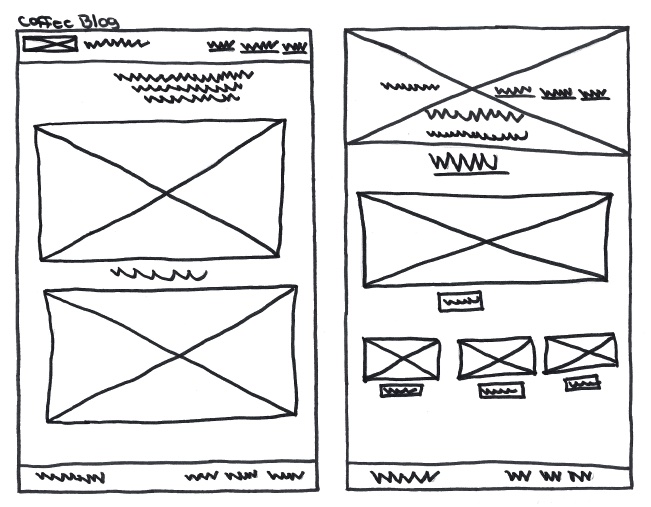 Coffee Blog